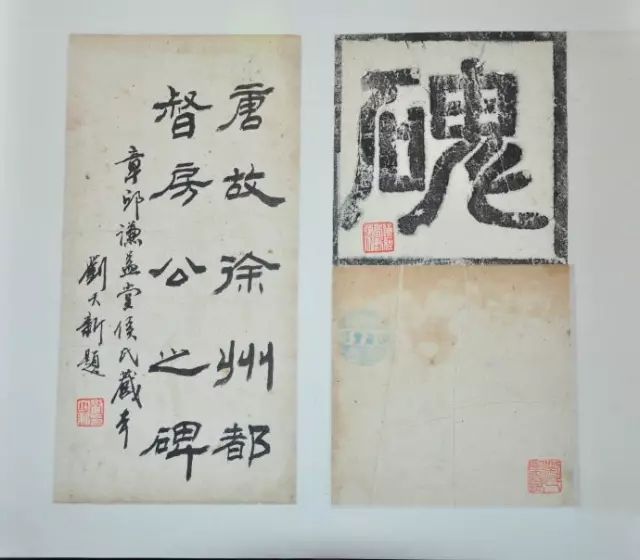 唐故徐州都
督房公之碑
章邱謙益堂侯氏藏本
劉大新題